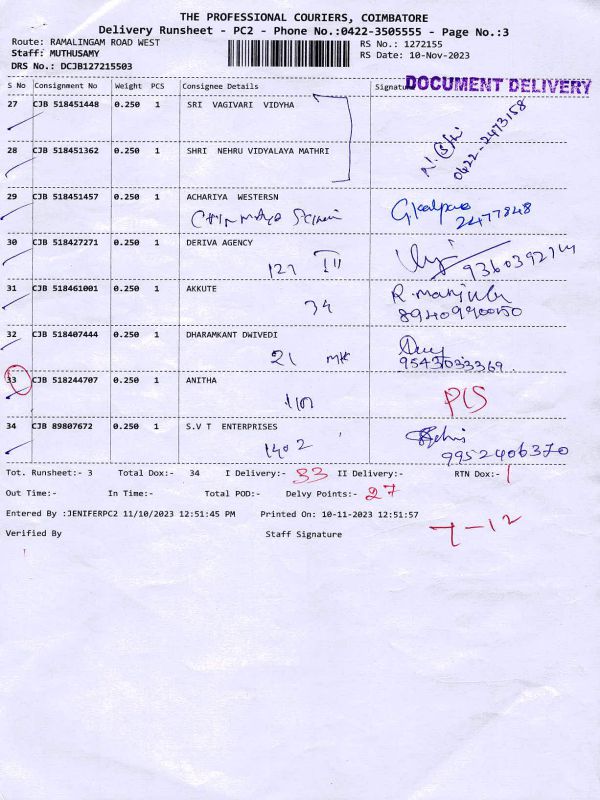 THE PROFESSIONAL COURIERS, COIMBATORE
Delivery Runsheet - PC2 - Phone No.:0422-3505555 - Page No.:3
Route: RAMALINGAM ROAD WEST RS No.: 1272155
Staff: MUTHUSAMY RS Date: 10-Nov-2023
DRS No.: DCJB127215503
DOCUMENT DELIVERY
S No Consignment No Weight PCS Consignee Details Signature
27 CJB 518451448 0.250 1 SRI VAGIVARI VIDYHA
0422-2473158
28 CJB 518451362 0.250 1 SHRI NEHRU VIDYALAYA MATHRI
29 CJB 518451457 0.250 1 ACHARIYA WESTERSN
2477848
30 CJB 518427271 0.250 1 DERIVA AGENCY
31 CJB 518461001 0.250 1 AKKUTE
34
32 CJB 518407444 0.250 1 DHARAMKANT DWIVEDI
21
9543033369
33 CJB 518244707 0.250 1 ANITHA
34 CJB 89807672 0.250 1 S.V T ENTERPRISES
1402 9952406370
Tot. Runsheet:- 3 Total Dox:- 34 I Delivery:- 33 II Delivery:- RTN Dox:- 1
Out Time:- In Time:- Total POD:- Delvy Points:- 27
Entered By :JENIFERPC2 11/10/2023 12:51:45 PM Printed On: 10-11-2023 12:51:57
7-12
Verified By Staff Signature